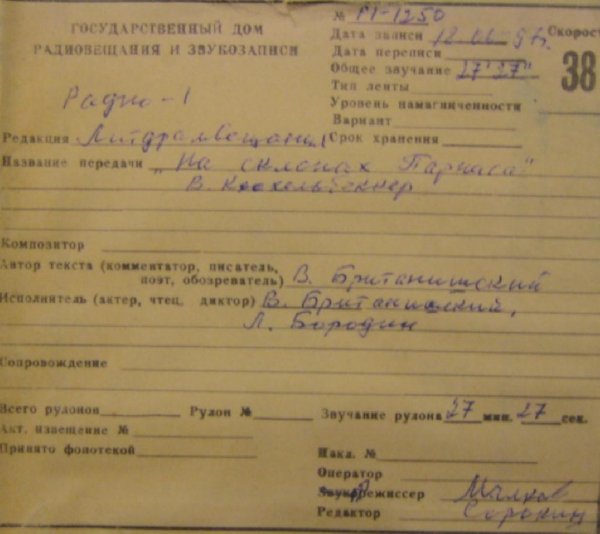 ГОСУДАРСТВЕННЫЙ ДОМ
РАДИОВЕЩАНИЯ И ЗВУКОЗАПИСИ
№ РТ-1250
Дата записи
Дата переписи
Общее звучание 27'27"
Тип ленты
Уровень намагниченности
Вариант
Срок хранения
Скорост
38
Радио-1
Редакция Литдрамвещания
Название передачи „На склонах Парнаса"
В. Кюхельбеккер
Композитор
Автор текста (комментатор, писатель,
поэт, обозреватель) В. Британишский
Исполнитель (актер, чтец, диктор) В. Британишский,
Л. Бородин
Сопровождение
Всего рулонов Рулон № Звучание рулона 27 мин. 27 сек.
Акт. извещение №
Принято фонотекой
Накл. №
Оператор
Звукорежиссер
Редактор Сорокин